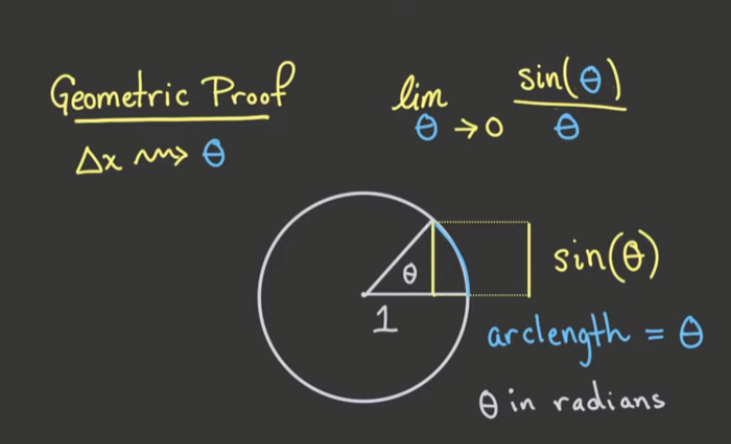 Geometric Proof
Δx ⇝ θ
lim θ→0 sin(θ)/θ
θ
1
sin(θ)
arclength = θ
θ in radians